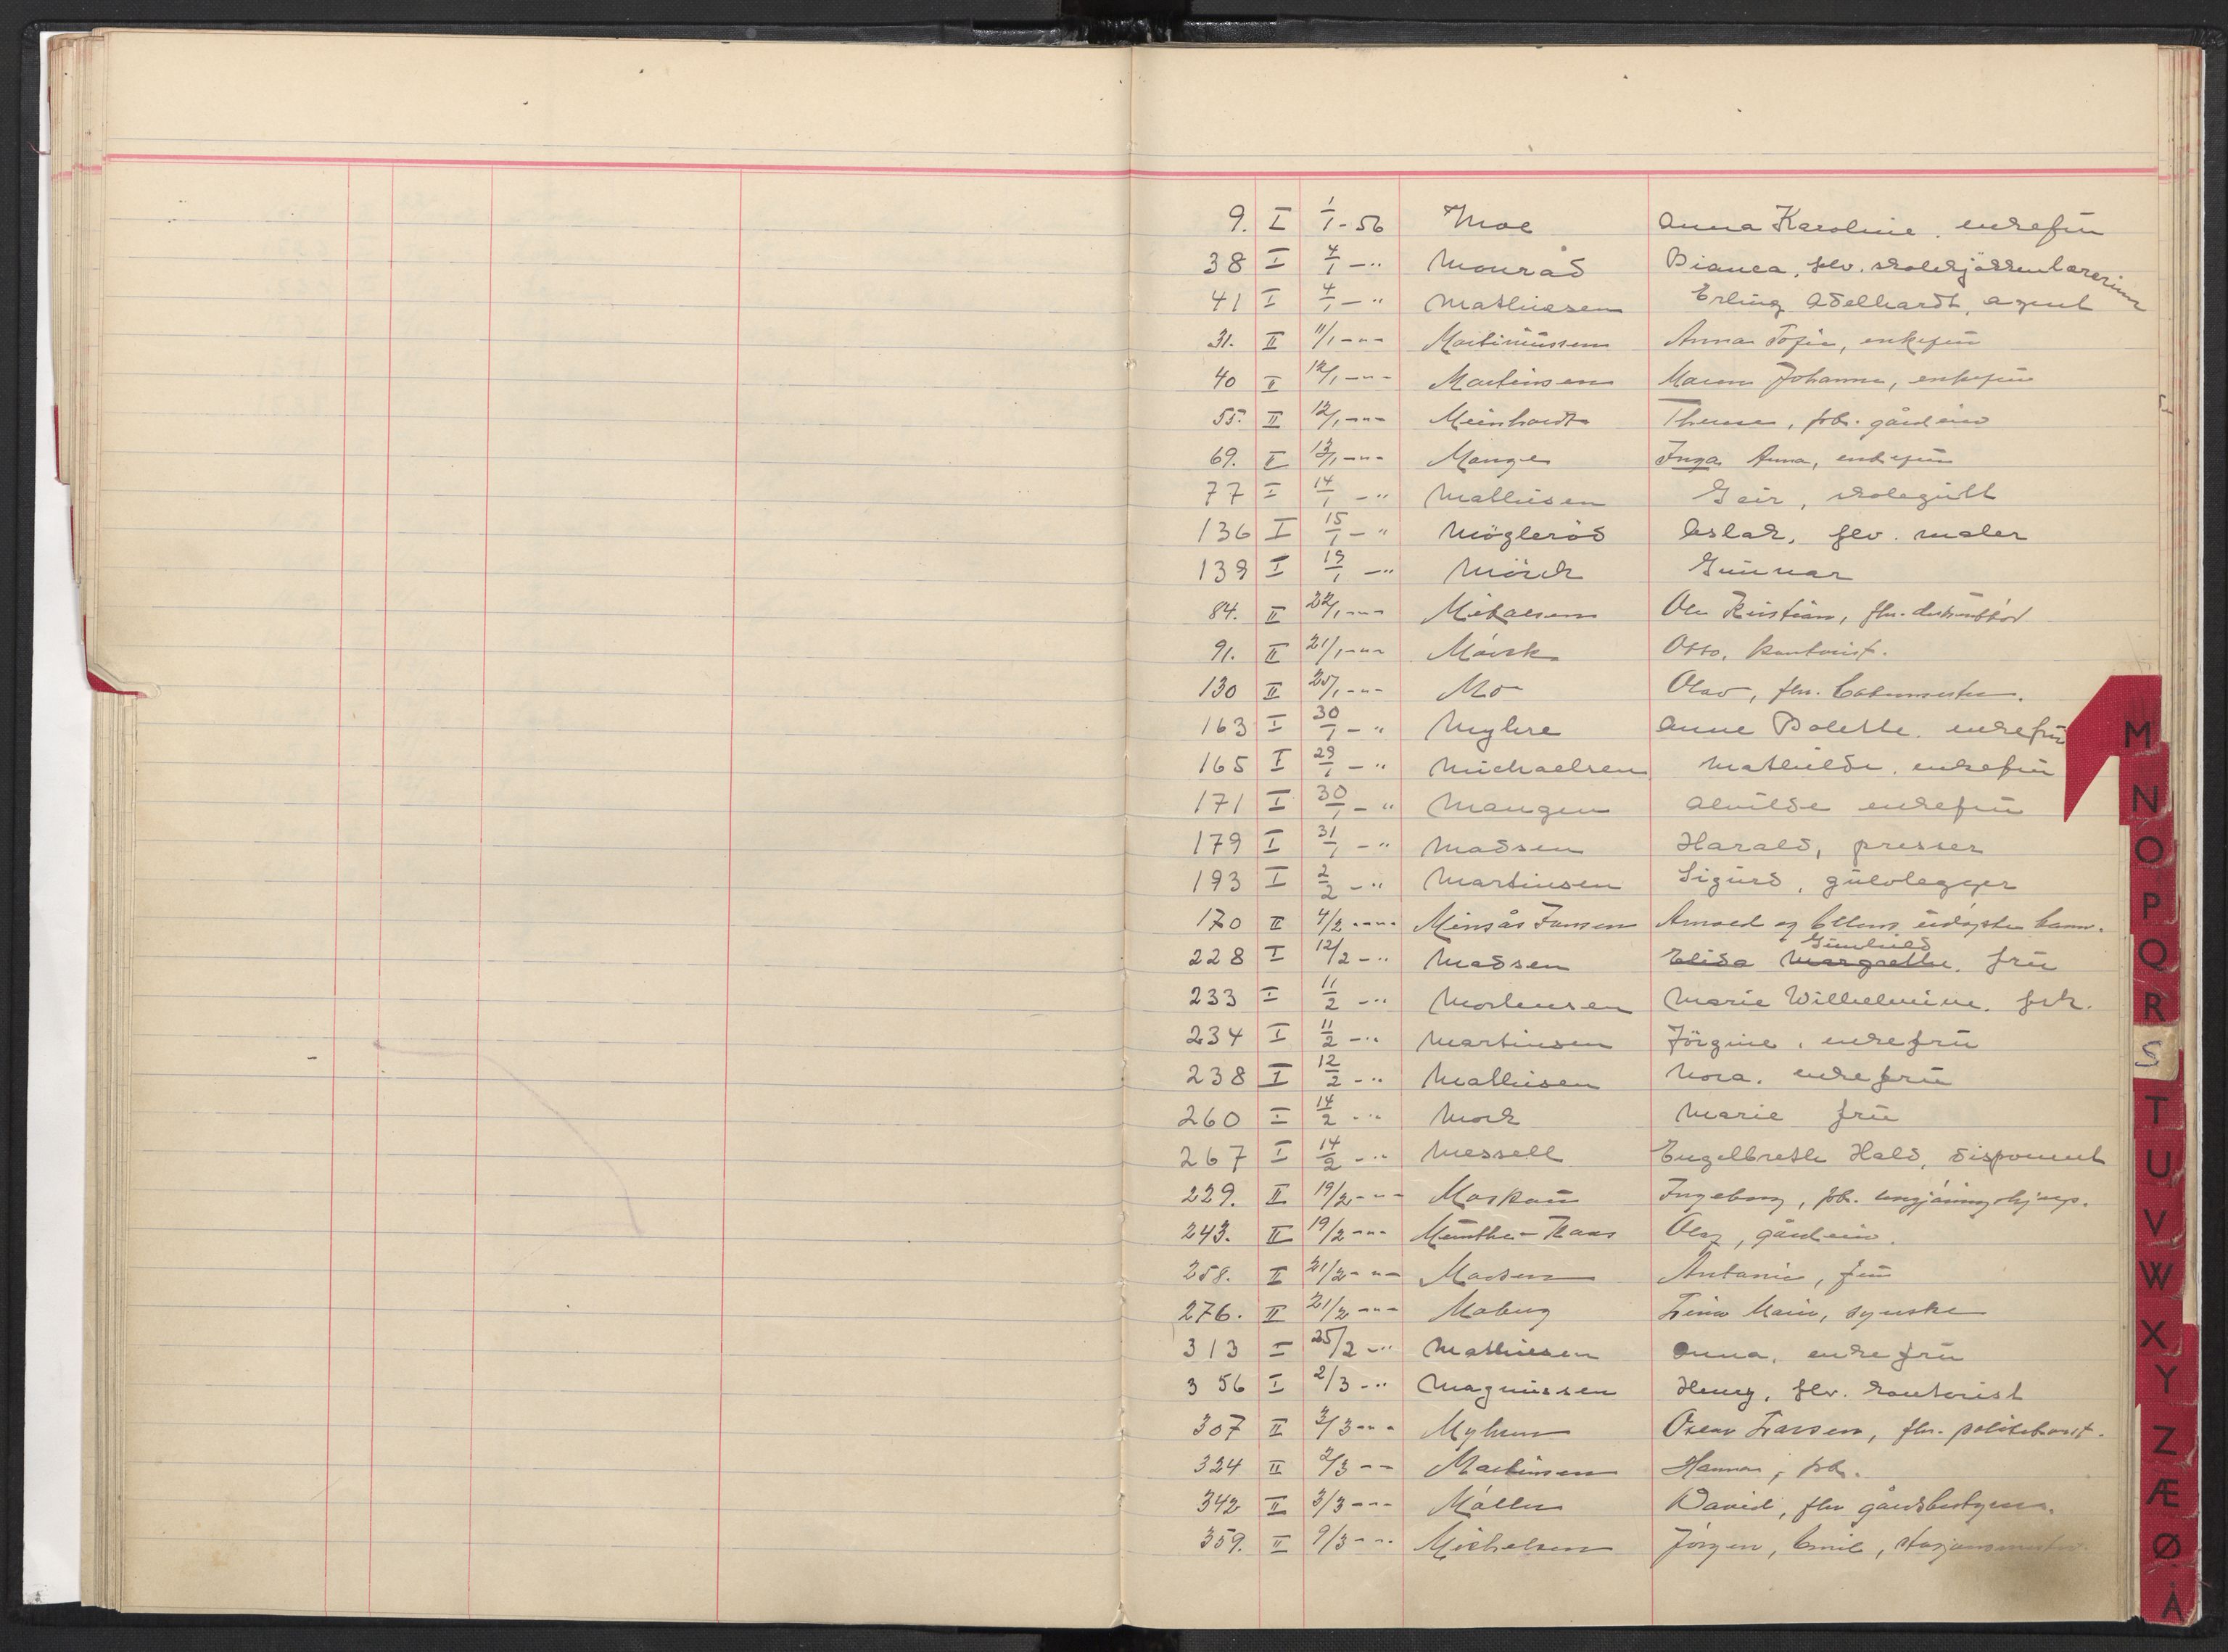 9. I 1/1-56 Moe Anna Karoline, enkefru
38 I 4/1 -" Monrad Bianca, flv. skolekjökkenlærerinne
41 I 4/1 -" Mathiesen Erling Adelhardt, agent
31. II 11/1 -"- Martiniussen Anna Sofie, enkefru
40 II 12/1 -"- Martinsen Maren Johanne, enkefru
55. II 12/1 -"- Meinhardt Therese, frk. gårdeier
69. II 13/1 -"- Mange Inga Anna, enkefru
77 I 14/1 -" Mathisen Geir, skolegutt
136 I 15/1 -" Möglerød Aslak, flv. maler
139 I 19/1 -" Mörck Gunnar
84. II 22/1 -"- Mikalsen Ole Kristian, fhv.
91. II 21/1 -"- Mørck Otto, kontorist.
130 II 25/1 -"- Mo Olav, fhv.
163 I 30/1 -" Myhre Anne Bolette, enkefru
165 I 29/1 -" Michaelsen Mathilde, enkefru
171 I 30/1 -" Mangen Alvilde enkefru
179 I 31/1 -" Madsen Harald, presser
193 I 2/2 -" Martinsen Sigurd, gulvlegger
170 II 4/2 -"- Minsås Jansen Arnold og Ellens udøpte barn.
228 I 12/2 -" Madsen Elida Margrethe Gunhild, fru
233 I 11/2 -" Mortensen Marie Wilhelmine, frk.
234 I 11/2 -" Martinsen Jörgine, enkefru
238 I 12/2 -" Mathisen Nora, enkefru
260 I 14/2 -" Mork Marie fru
267 I 14/2 -" Messell Engelbreth Hald, disponent
229. II 19/2 -"- Maskau Ingeborg, frk. rengjøringshjelp.
243. II 19/2 -"- Munthe-Kaas Olaf, gårdeier.
258. II 21/2 -"- Madsen Antonie, fru
276. II 21/2 -"- Moberg Trine Marie, syerske
313 I 25/2 -" Mathiesen Anna, enkefru
356 I 2/3 -" Magnussen Henry, flv. kontorist
307 II 3/3 -"- Myhren Oscar Larsen, fhv. politikonst.
324 II 2/3 -- Martinsen Hanna, frk.
342 II 3/3 -"- Møller David, fhv gårdsbestyrer.
359. II 9/3 -"- Michelsen Jörgen, Emil, stasjonsmester.
M
N
O
P
Q
R
S
T
U
V
W
X
Y
Z
Æ
Ø
Å